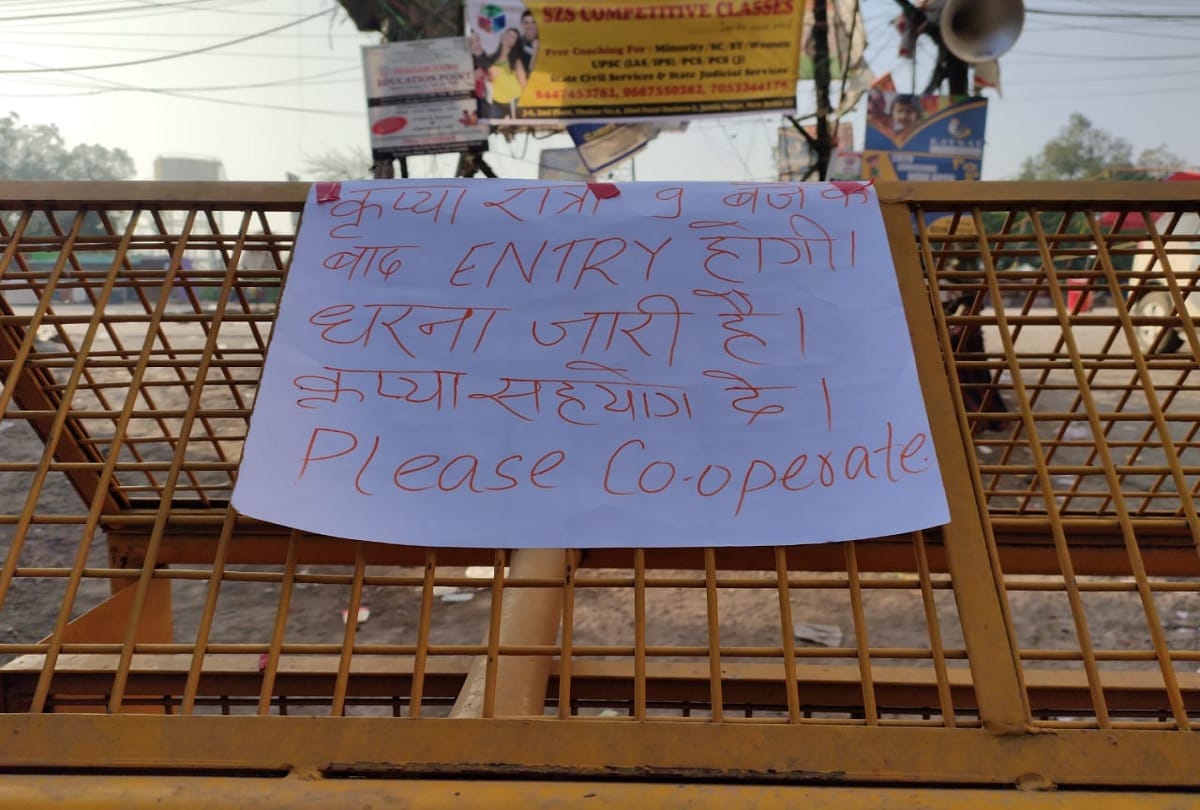 SZS COMPETITIVE CLASSES
Free Coaching For : Minority/SC/ST/Women
UPSC (IAS/IPS)/PCS/PCS (J)
State Civil Services & State Judicial Services
8447453762, 9667550262, 7053344176
EDUCATION POINT
कृप्या रात्री 9 बजे के
बाद ENTRY होगी।
धरना जारी है।
कृप्या सहयोग दे।
Please Co-operate.